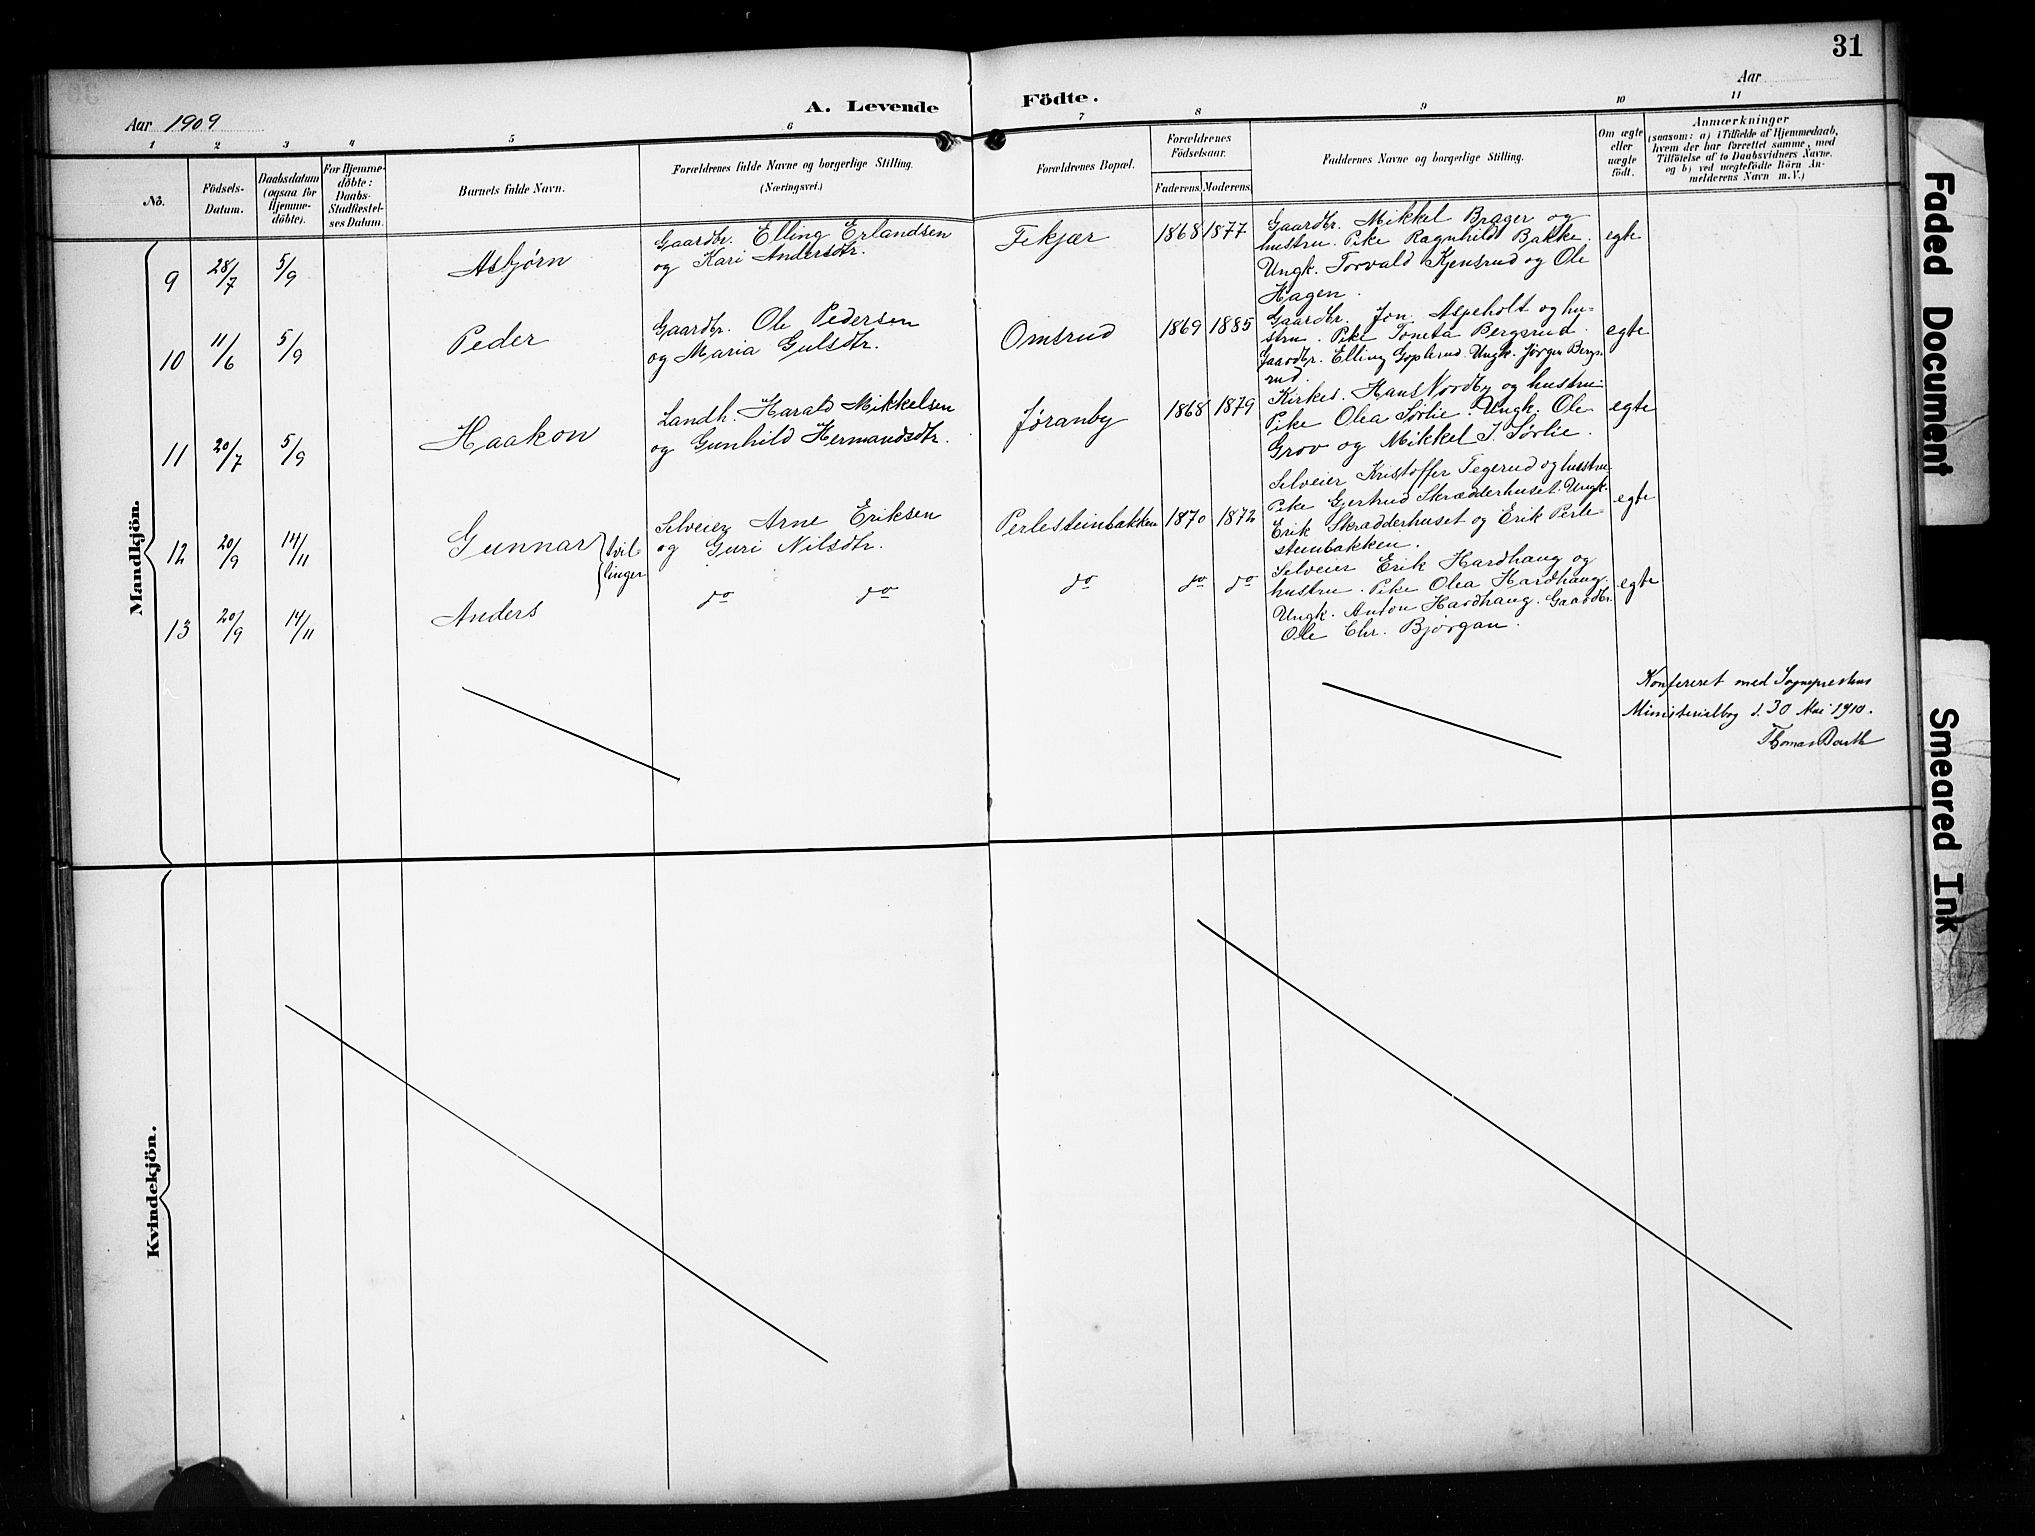 31
Aar 1909
A. Levende Födte.
Aar
1 2 3 4 5 6 7 8 9 10 11
No.
Födsels-
Datum.
Daabsdatum
(ogsaa for
Hjemme-
døbte).
For Hjemme-
døbte:
Daabs-
Stadfæstel-
ses Datum.
Barnets fulde Navn.
Forældrenes fulde Navne og borgerlige Stilling.
(Næringsvei.)
Forældrenes Bopæl.
Forældrenes
Födselsaar.
Faderens. Moderens.
Faddernes Navne og borgerlige Stilling.
Om ægte
eller
uægte
födt.
Anmærkninger
(saasom: a) i Tilfælde af Hjemmedaab,
hvem der har forrettet samme, med
Tilföielse af to Daabsvidners Navne.
og b) ved uægtefödte Börn An-
melderens Navn m. V.)
Mandkjön.
9 28/7 5/9 Asbjørn
Gaardbr. Elling Erlandsen
og Kari Andersdtr.
Tekjær 1868 1877
Gaardbr. Mikkel Brager og
hustru. Pike Ragnhild Bakke.
Ungk. Torvald Kjensrud og Ole
Hagen.
egte
10 11/6 5/9 Peder
Gaardbr. Ole Pedersen
og Maria Gulsdtr.
Omsrud 1869 1885
Gaardbr. Jon Aspeholt og hu-
stru. Pike Toneta Bergsrud.
Gaardbr. Elling Goplerud. Ungk. Jörgen Bergs-
rud.
egte
11 20/7 5/9 Haakon
Landh. Harald Mikkelsen
og Gunhild Hermandsdtr.
Jøranby 1868 1879
Kirkes. Hans Nordby og hustru.
Pike Olea Sørlie. Ungk. Ole
Grov og Mikkel J. Sørlie.
egte
12 20/9 14/11 Gunnar
tvil-
linger
Selveier Arne Eriksen
og Guri Nilsdtr.
Perlesteinbakken 1870 1872
Selveier Kristoffer Tegerud og hustru
Pike Gjertrud Skrædderhuset. Ungk.
Erik Skrædderhuset og Erik Perle-
steinbakken.
egte
13 20/9 14/11 Anders
do do
do do do
Selveier Erik Hardhaug og
hustru. Pike Olea Hardhaug.
Ungk. Anton Hardhaug. Gaardbr.
Ole Chr. Bjørgan.
egte
Konfereret med Sogneprestens
Ministerialbog d. 30 Mai 1910.
Thomas Barth
Kvindekjön.
Faded Document
Smeared Ink